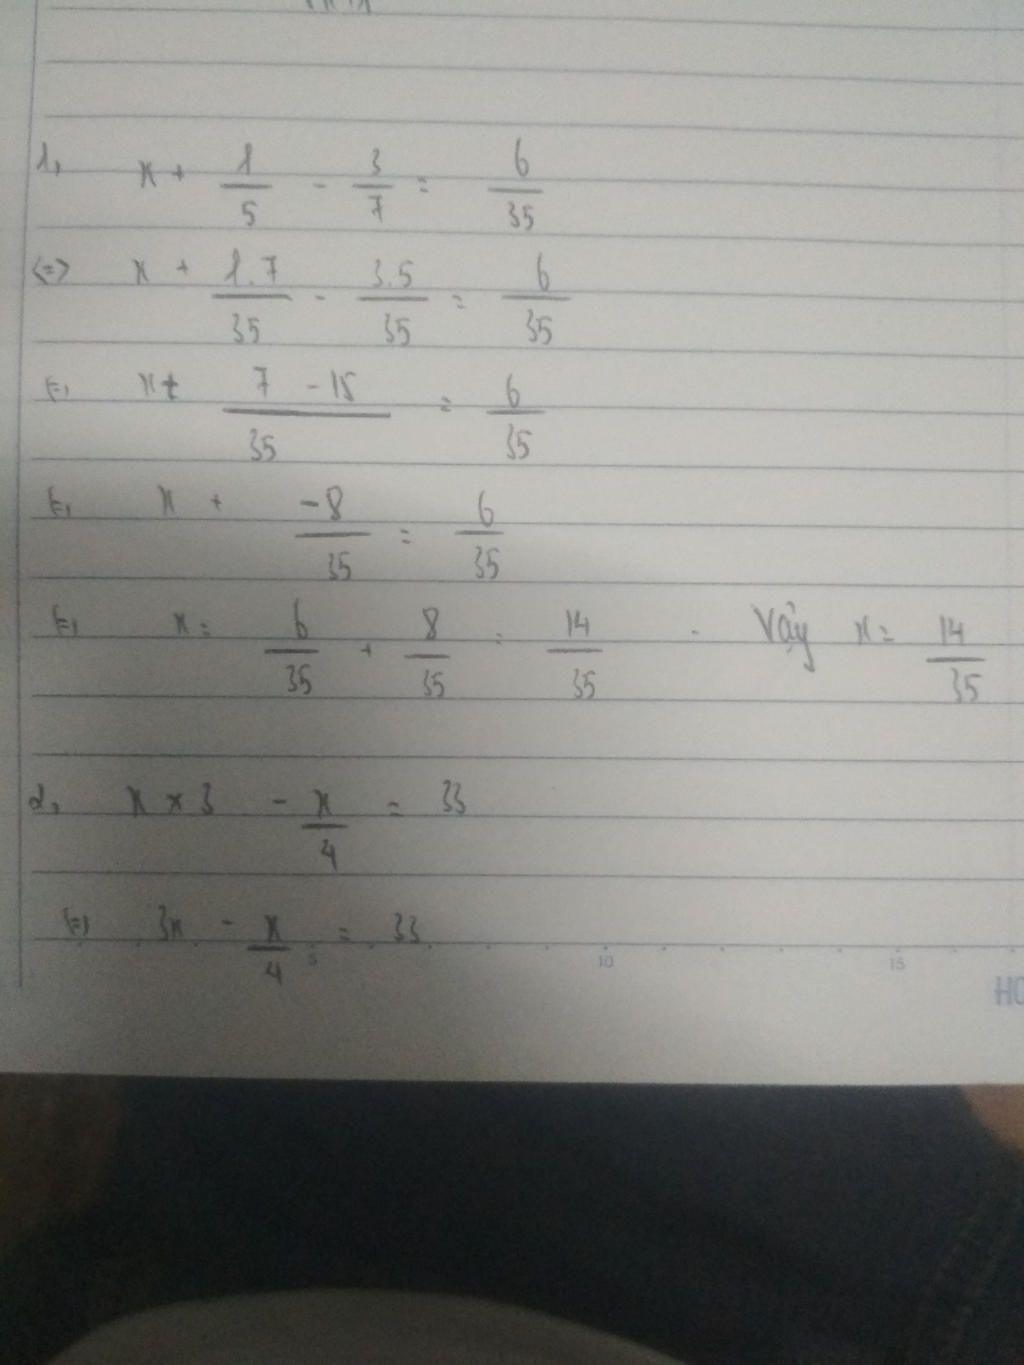 1, x + 1/5 - 3/7 = 6/35
<=> x + 1.7/35 - 3.5/35 = 6/35
<=> x + 7 - 15/35 = 6/35
<=> x + -8/35 = 6/35
<=> x = 6/35 + 8/35 = 14/35 . Vậy x = 14/35
2, x × 3 - x/4 = 33
<=> 3x - x/4 = 33
5 10 15
HO